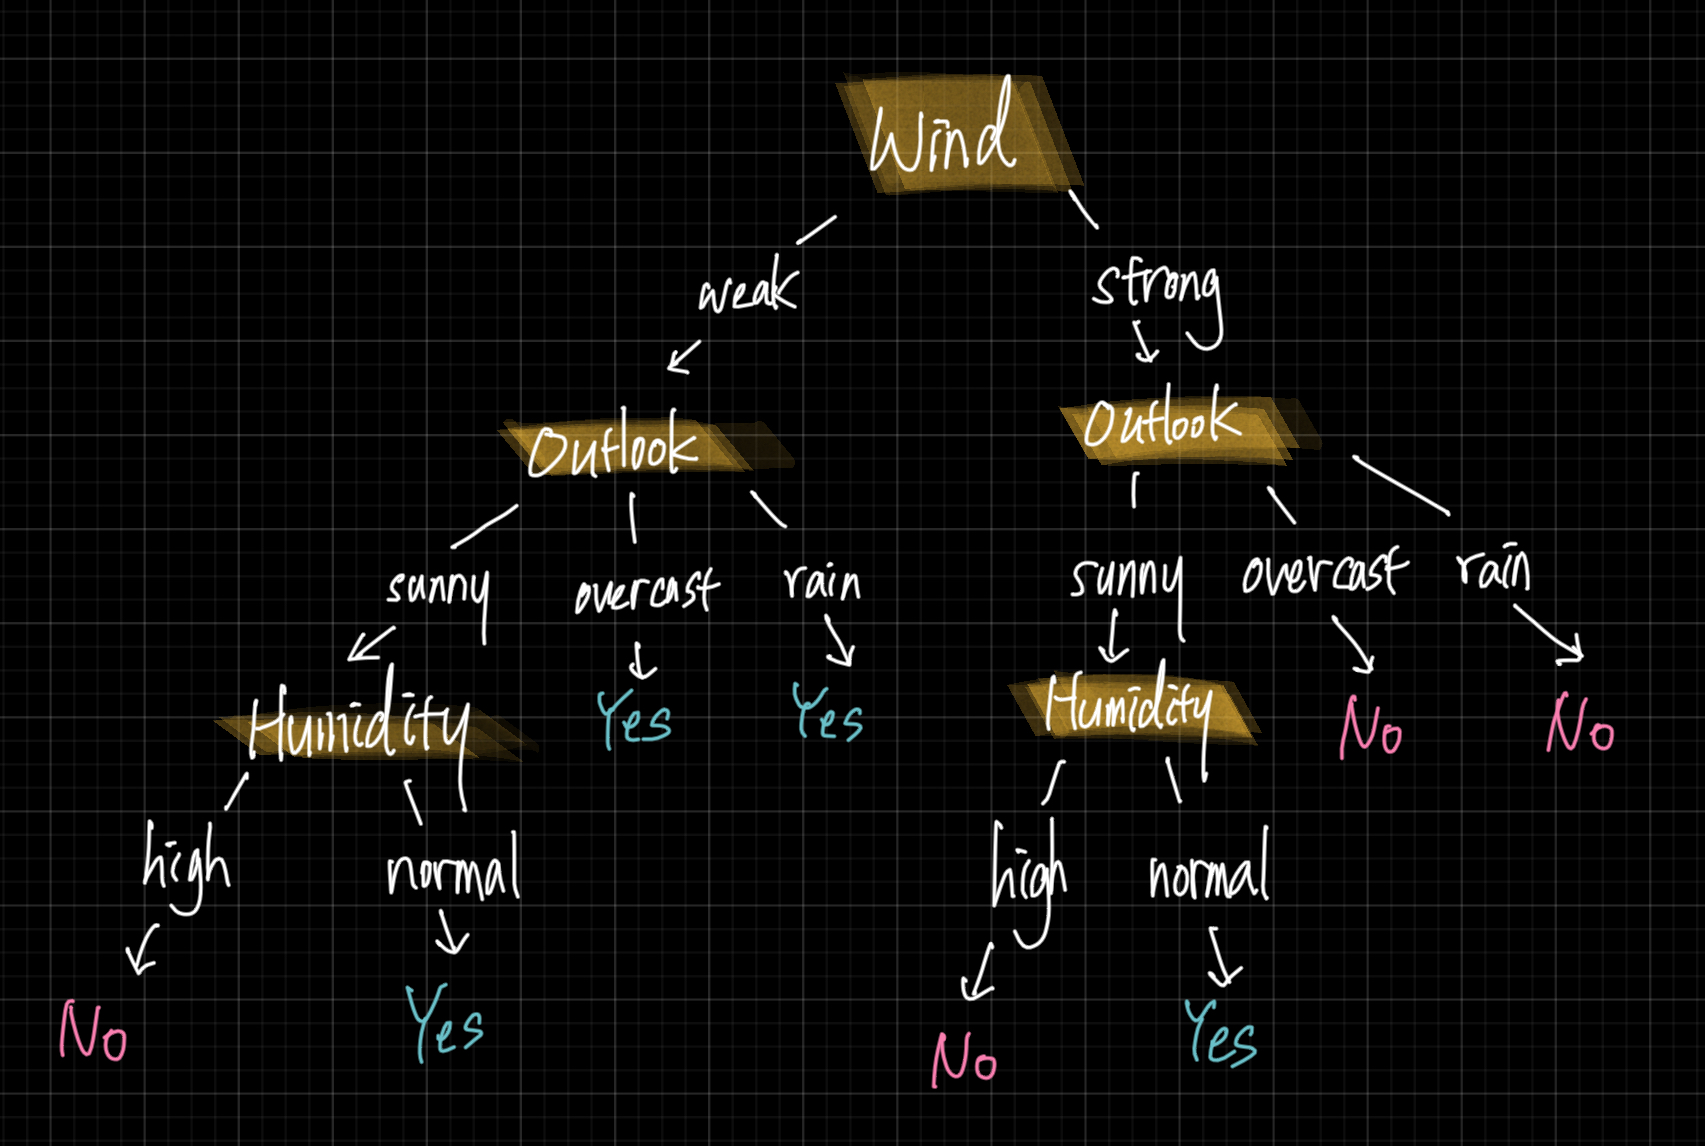 Wind
weak
strong
Outlook
Outlook
sunny
overcast
rain
sunny
overcast
rain
Humidity
Yes
Yes
Humidity
No
No
high
normal
high
normal
No
Yes
No
Yes